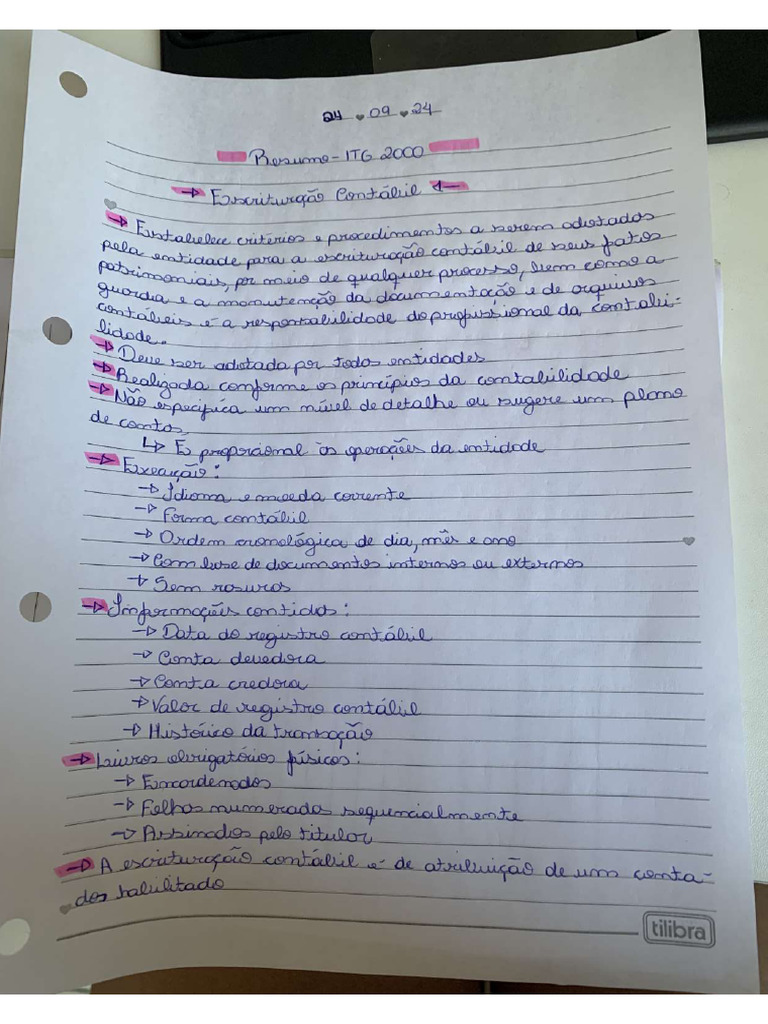 24 09 24
Resumo - ITG 2000
→ Escrituração Contábil ←
→ Estabelece critérios e procedimentos a serem adotados
pela entidade para a escrituração contábil de seus fatos
patrimoniais, por meio de qualquer processo, bem como a
guarda e a manutenção da documentação e de arquivos
contábeis e a responsabilidade do profissional da contabi-
lidade.
→ Deve ser adotada por todas entidades
→ Realizada conforme os princípios da contabilidade
→ Não especifica um nível de detalhe ou sugere um plano
de contas
↳ É proporcional às operações da entidade
→ Execução:
→ Idioma e moeda corrente
→ Forma contábil
→ Ordem cronológica de dia, mês e ano
→ Com base de documentos internos ou externos
→ Sem rasuras
→ Informações contidas:
→ Data do registro contábil
→ Conta devedora
→ Conta credora
→ Valor de registro contábil
→ Histórico da transação
→ Livros obrigatórios físicos:
→ Encardenados
→ Folhas numeradas sequencialmente
→ Assinados pelo titular
→ A escrituração contábil é de atribuição de um conta-
dor habilitado
tilibra